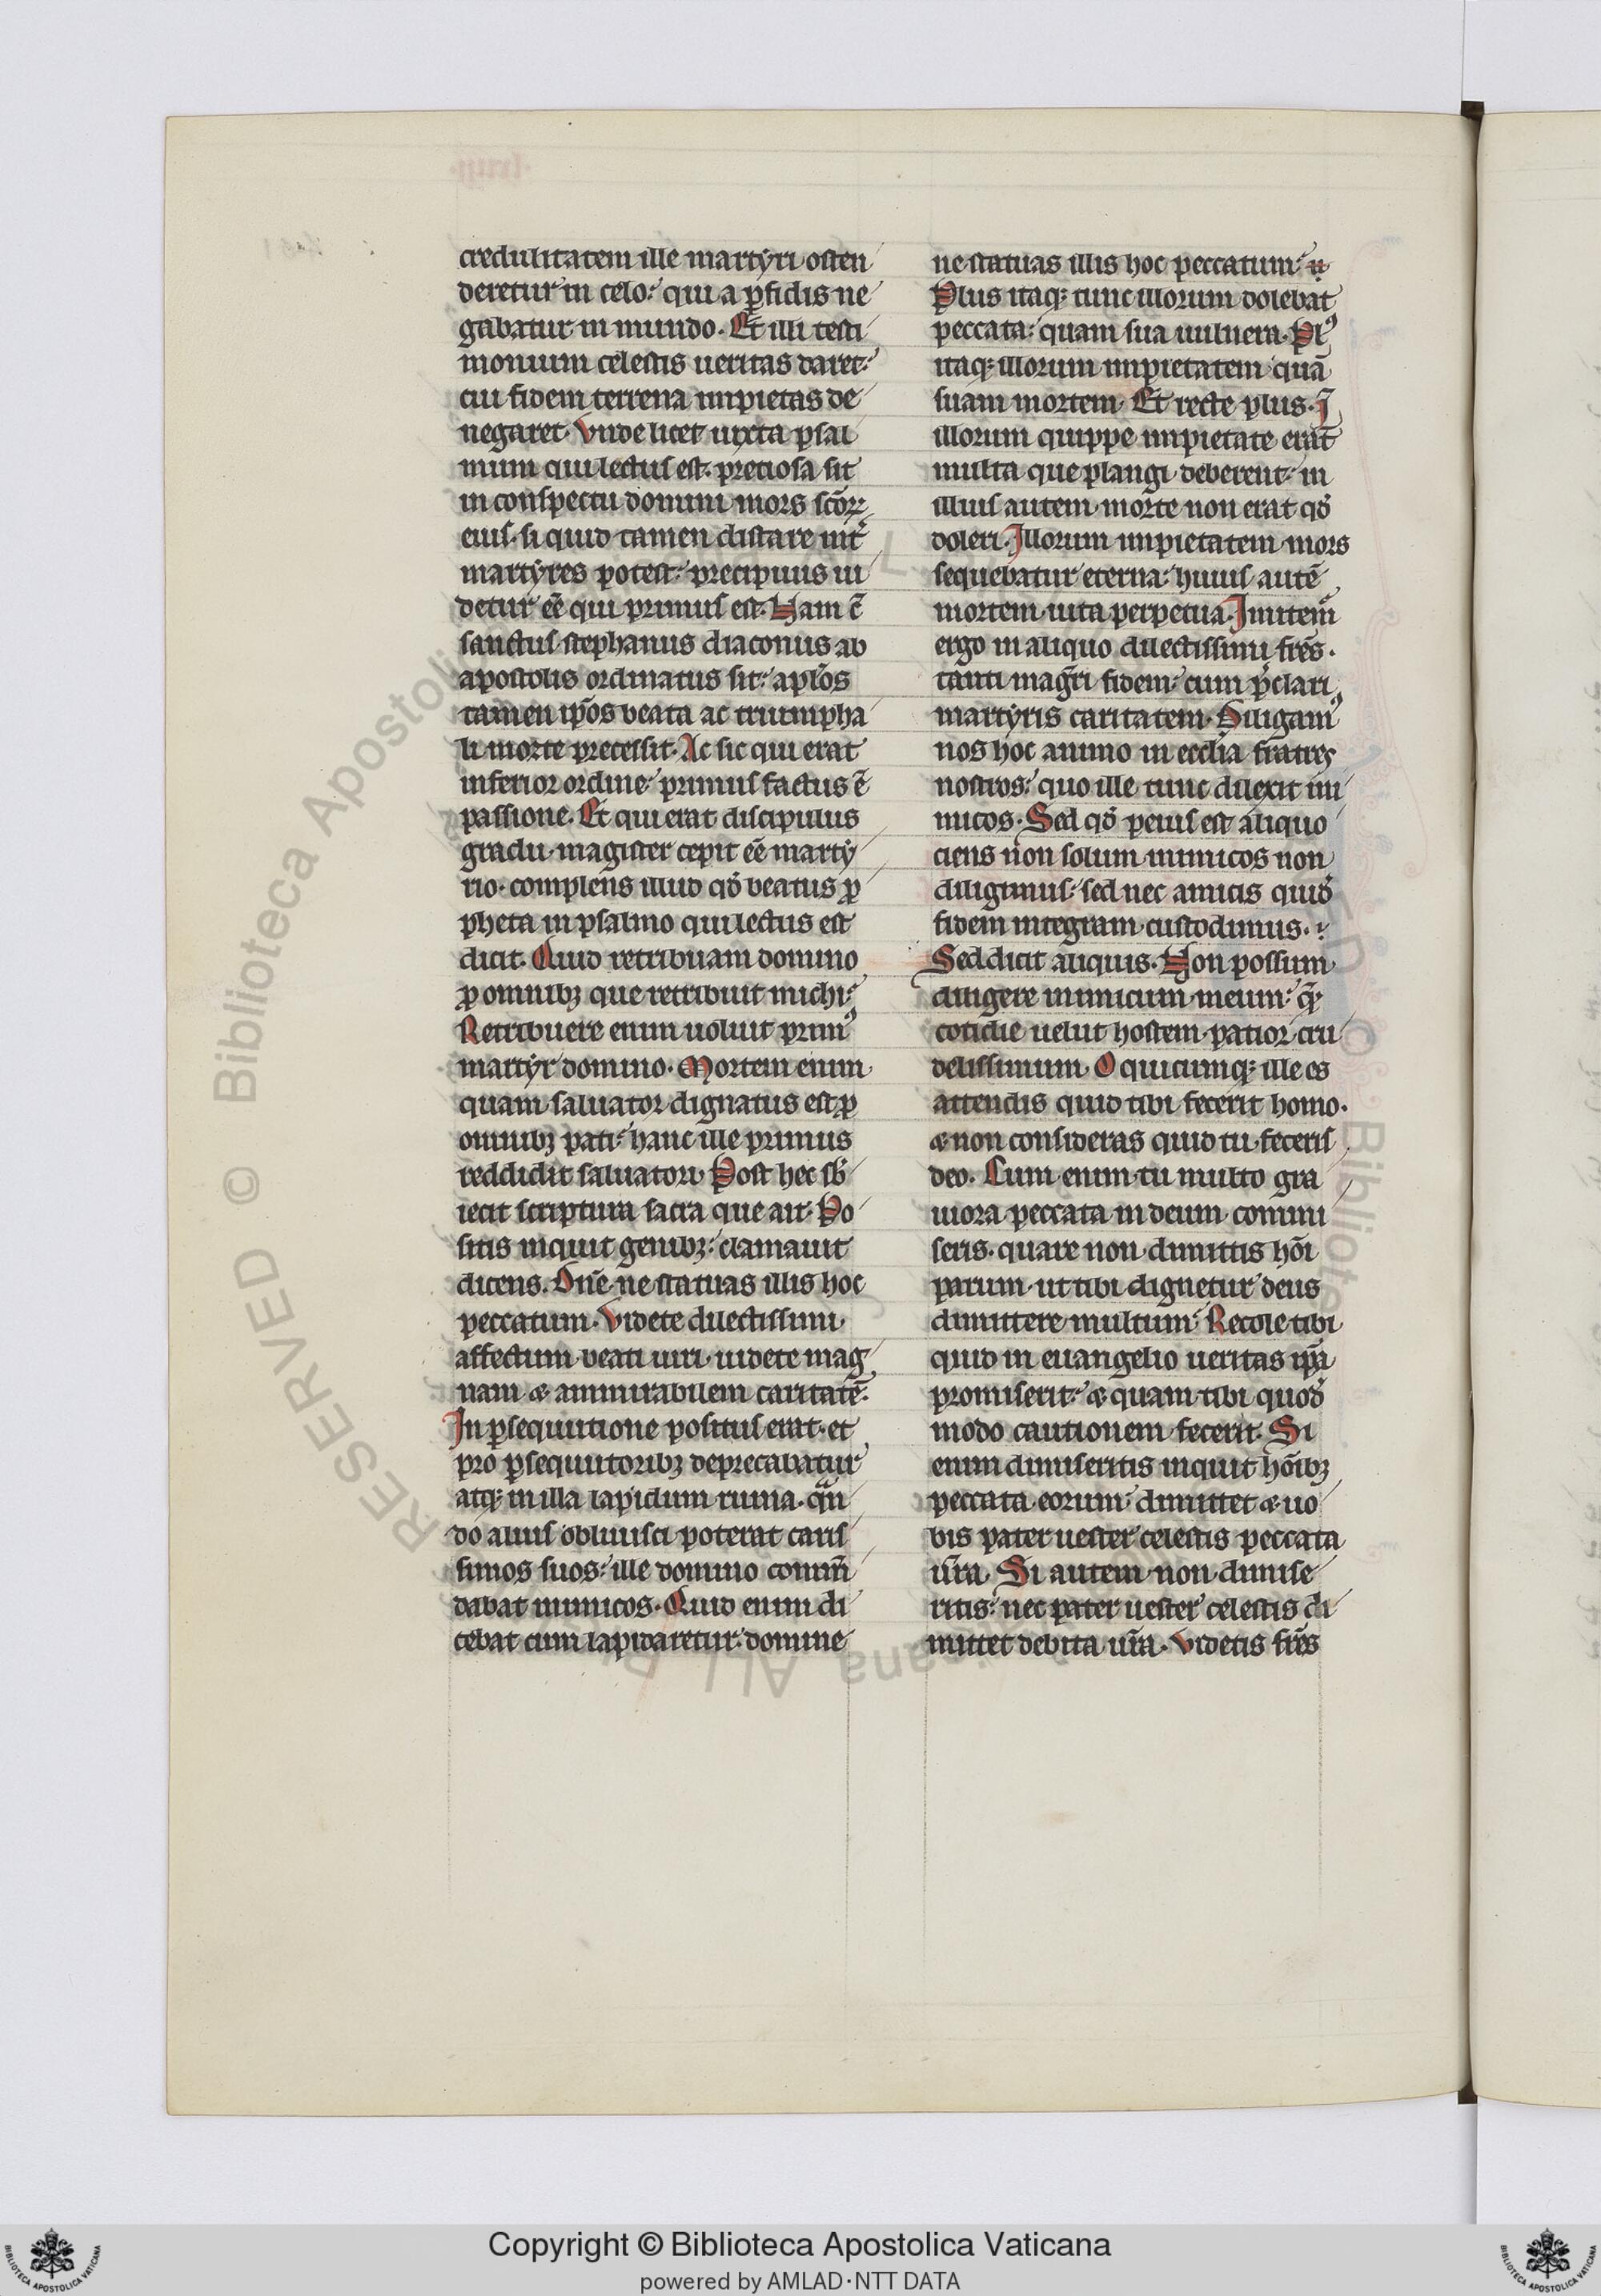 credulitatem ille martyri osten
deretur in celo: qui a ꝑfidis ne
gabatur in mundo. Et illi testi
monium celestis ueritas daret:
cui fidem terrena impietas de
negaret. Vnde licet iuxta psal
mum qui lectus est. preciosa sit
in conspectu domini mors scõꝝ
eius. si quid tamen distare int̃
martyres potest: precipuus ui
detur eẽ qui primus est. Nam c̃
sanctus stephanus diaconus ab
apostolis ordinatus sit: apl̃os
tamen ip̃os beata ac triumpha
li morte precessit. Ac sic qui erat
inferior ordine: primus factus ẽ
passione. Et qui erat discipulus
gradu. magister cepit eẽ marty
rio. complens illud qđ beatus ꝓ
pheta in psalmo qui lectus est
dicit. Quid retribuam domino
ꝓ omnibꝫ que retribuit michi:
Retribuere enim uoluit primꝰ
martyr domino. Mortem enim
quam saluator dignatus est ꝓ
omnibꝫ pati: hanc ille primus
reddidit saluatori. Post hec sƀ
iecit scriptura sacra que ait. Po
sitis inquit genibꝫ: clamauit
dicens. Dñe ne statuas illis hoc
peccatum. Videte dilectissimi
affectum beati uiri. uidete mag
nam & ammirabilem caritatẽ:
In ꝑsequutione positus erat. et
pro ꝑsequutoribꝫ deprecabatur
atqꝫ in illa lapidum ruina. qñ
do alius obliuisci poterat caris
simos suos: ille domino comm̃
dabat inimicos. Quid enim di
cebat cum lapidaretur: domine
ne statuas illis hoc peccatum:
Plus itaqꝫ tunc illorum dolebat
peccata: quam sua uulnera. Plꝰ
itaqꝫ illorum impietatem quã
suam mortem. Et recte plus. I
illorum quippe impietate erat
multa que plangi deberent: in
illius autem morte non erat qđ
doleri. Illorum impietatem mors
sequebatur eterna: huius autẽ
mortem uita perpetua. Imitem̃
ergo in aliquo dilectissimi fr̃es.
tanti mag̃ri fidem: cum p̃clari
martyris caritatem. Diligamꝰ
nos hoc animo in ecclia fratres
nostros: quo ille tunc dilexit ini
micos. Sed qđ peius est aliquo
ciens non solum inimicos non
diligimus: sed nec amicis quiđ
fidem integram custodimus.
Sed dicit aliquis. Non possum
diligere inimicum meum: q̃
cotidie uelut hostem patior cru
delissimum. O quicumqꝫ ille es
attendis quid tibi fecerit homo.
& non consideras quid tu feceris
deo. Cum enim tu multo gra
uiora peccata in deum commi
seris. quare non dimittis hõi
parum. ut tibi dignetur deus
dimittere multum: Recole tibi
quid in euangelio ueritas ip̃a
promiserit: & quam tibi quođ
modo cautionem fecerit. Si
enim dimiseritis inquit hõibꝫ
peccata eorum: dimittet & uo
bis pater uester celestis peccata
ur̃a. Si autem non dimise
ritis: nec pater uester celestis di
mittet debita ur̃a. Videtis fr̃es
RESERVED © Biblioteca Apostolica
Copyright © Biblioteca Apostolica Vaticana
powered by AMLAD·NTT DATA